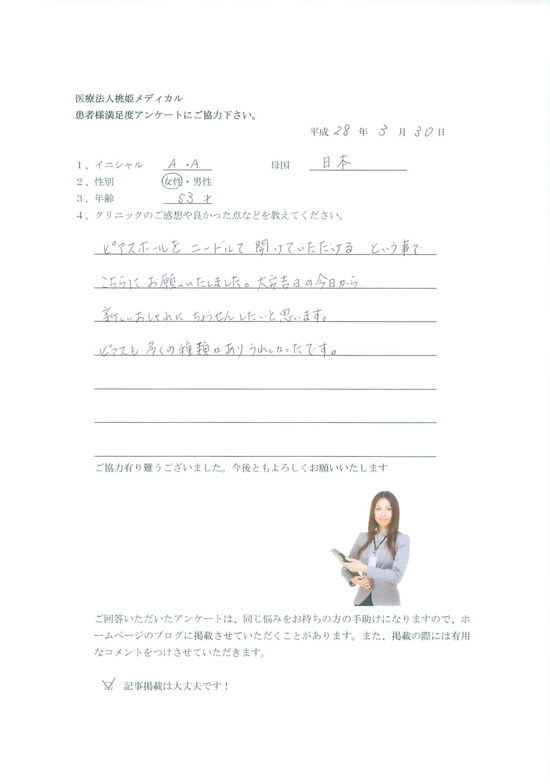 医療法人桃姫メディカル
患者様満足度アンケートにご協力下さい。
平成 28 年 3 月 30 日
1、イニシャル A ・A 母国 日本
2、性別 女性・男性
3、年齢 53 才
4、クリニックのご感想や良かった点などを教えてください。
ピアスホールを ニードルで 開けていただける という事で
こちらに お願いいたしました。大安吉日の今日から
新しいおしゃれに ちょうせんしたいと思います。
ピアスも 多くの種類があり うれしかったです。
ご協力有り難うございました。今後ともよろしくお願いいたします
ご回答いただいたアンケートは、同じ悩みをお持ちの方の手助けになりますので、ホ
ームページのブログに掲載させていただくことがあります。また、掲載の際には有用
なコメントをつけさせていただきます。
☑ 記事掲載は大丈夫です！